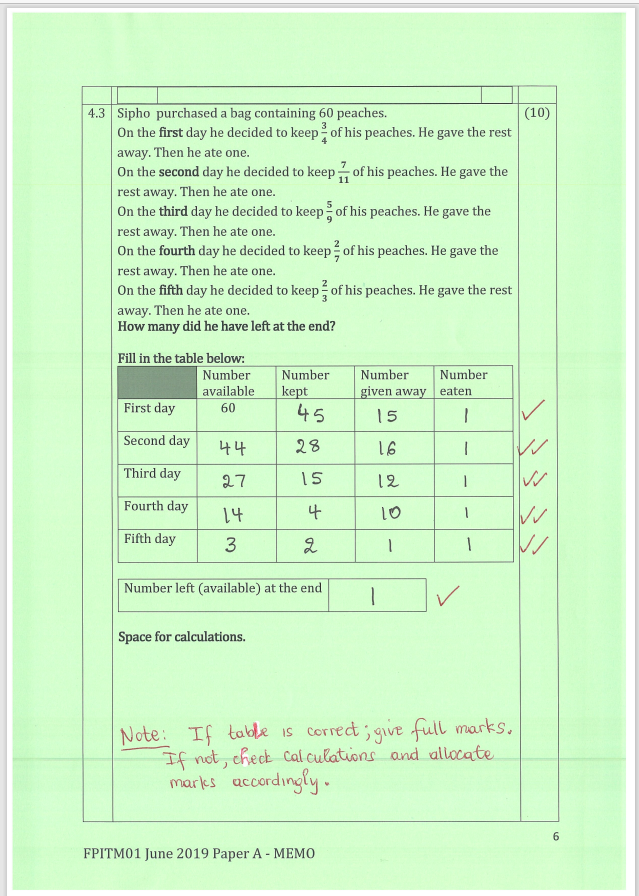 4.3 Sipho purchased a bag containing 60 peaches. (10)
On the first day he decided to keep 3/4 of his peaches. He gave the rest
away. Then he ate one.
On the second day he decided to keep 7/11 of his peaches. He gave the
rest away. Then he ate one.
On the third day he decided to keep 5/9 of his peaches. He gave the
rest away. Then he ate one.
On the fourth day he decided to keep 2/7 of his peaches. He gave the
rest away. Then he ate one.
On the fifth day he decided to keep 2/3 of his peaches. He gave the rest
away. Then he ate one.
How many did he have left at the end?
Fill in the table below:
Number available Number kept Number given away Number eaten
First day 60 45 15 1
Second day 44 28 16 1
Third day 27 15 12 1
Fourth day 14 4 10 1
Fifth day 3 2 1 1
Number left (available) at the end 1
Space for calculations.
Note: If table is correct; give full marks.
If not, check calculations and allocate
marks accordingly.
6
FPITM01 June 2019 Paper A - MEMO